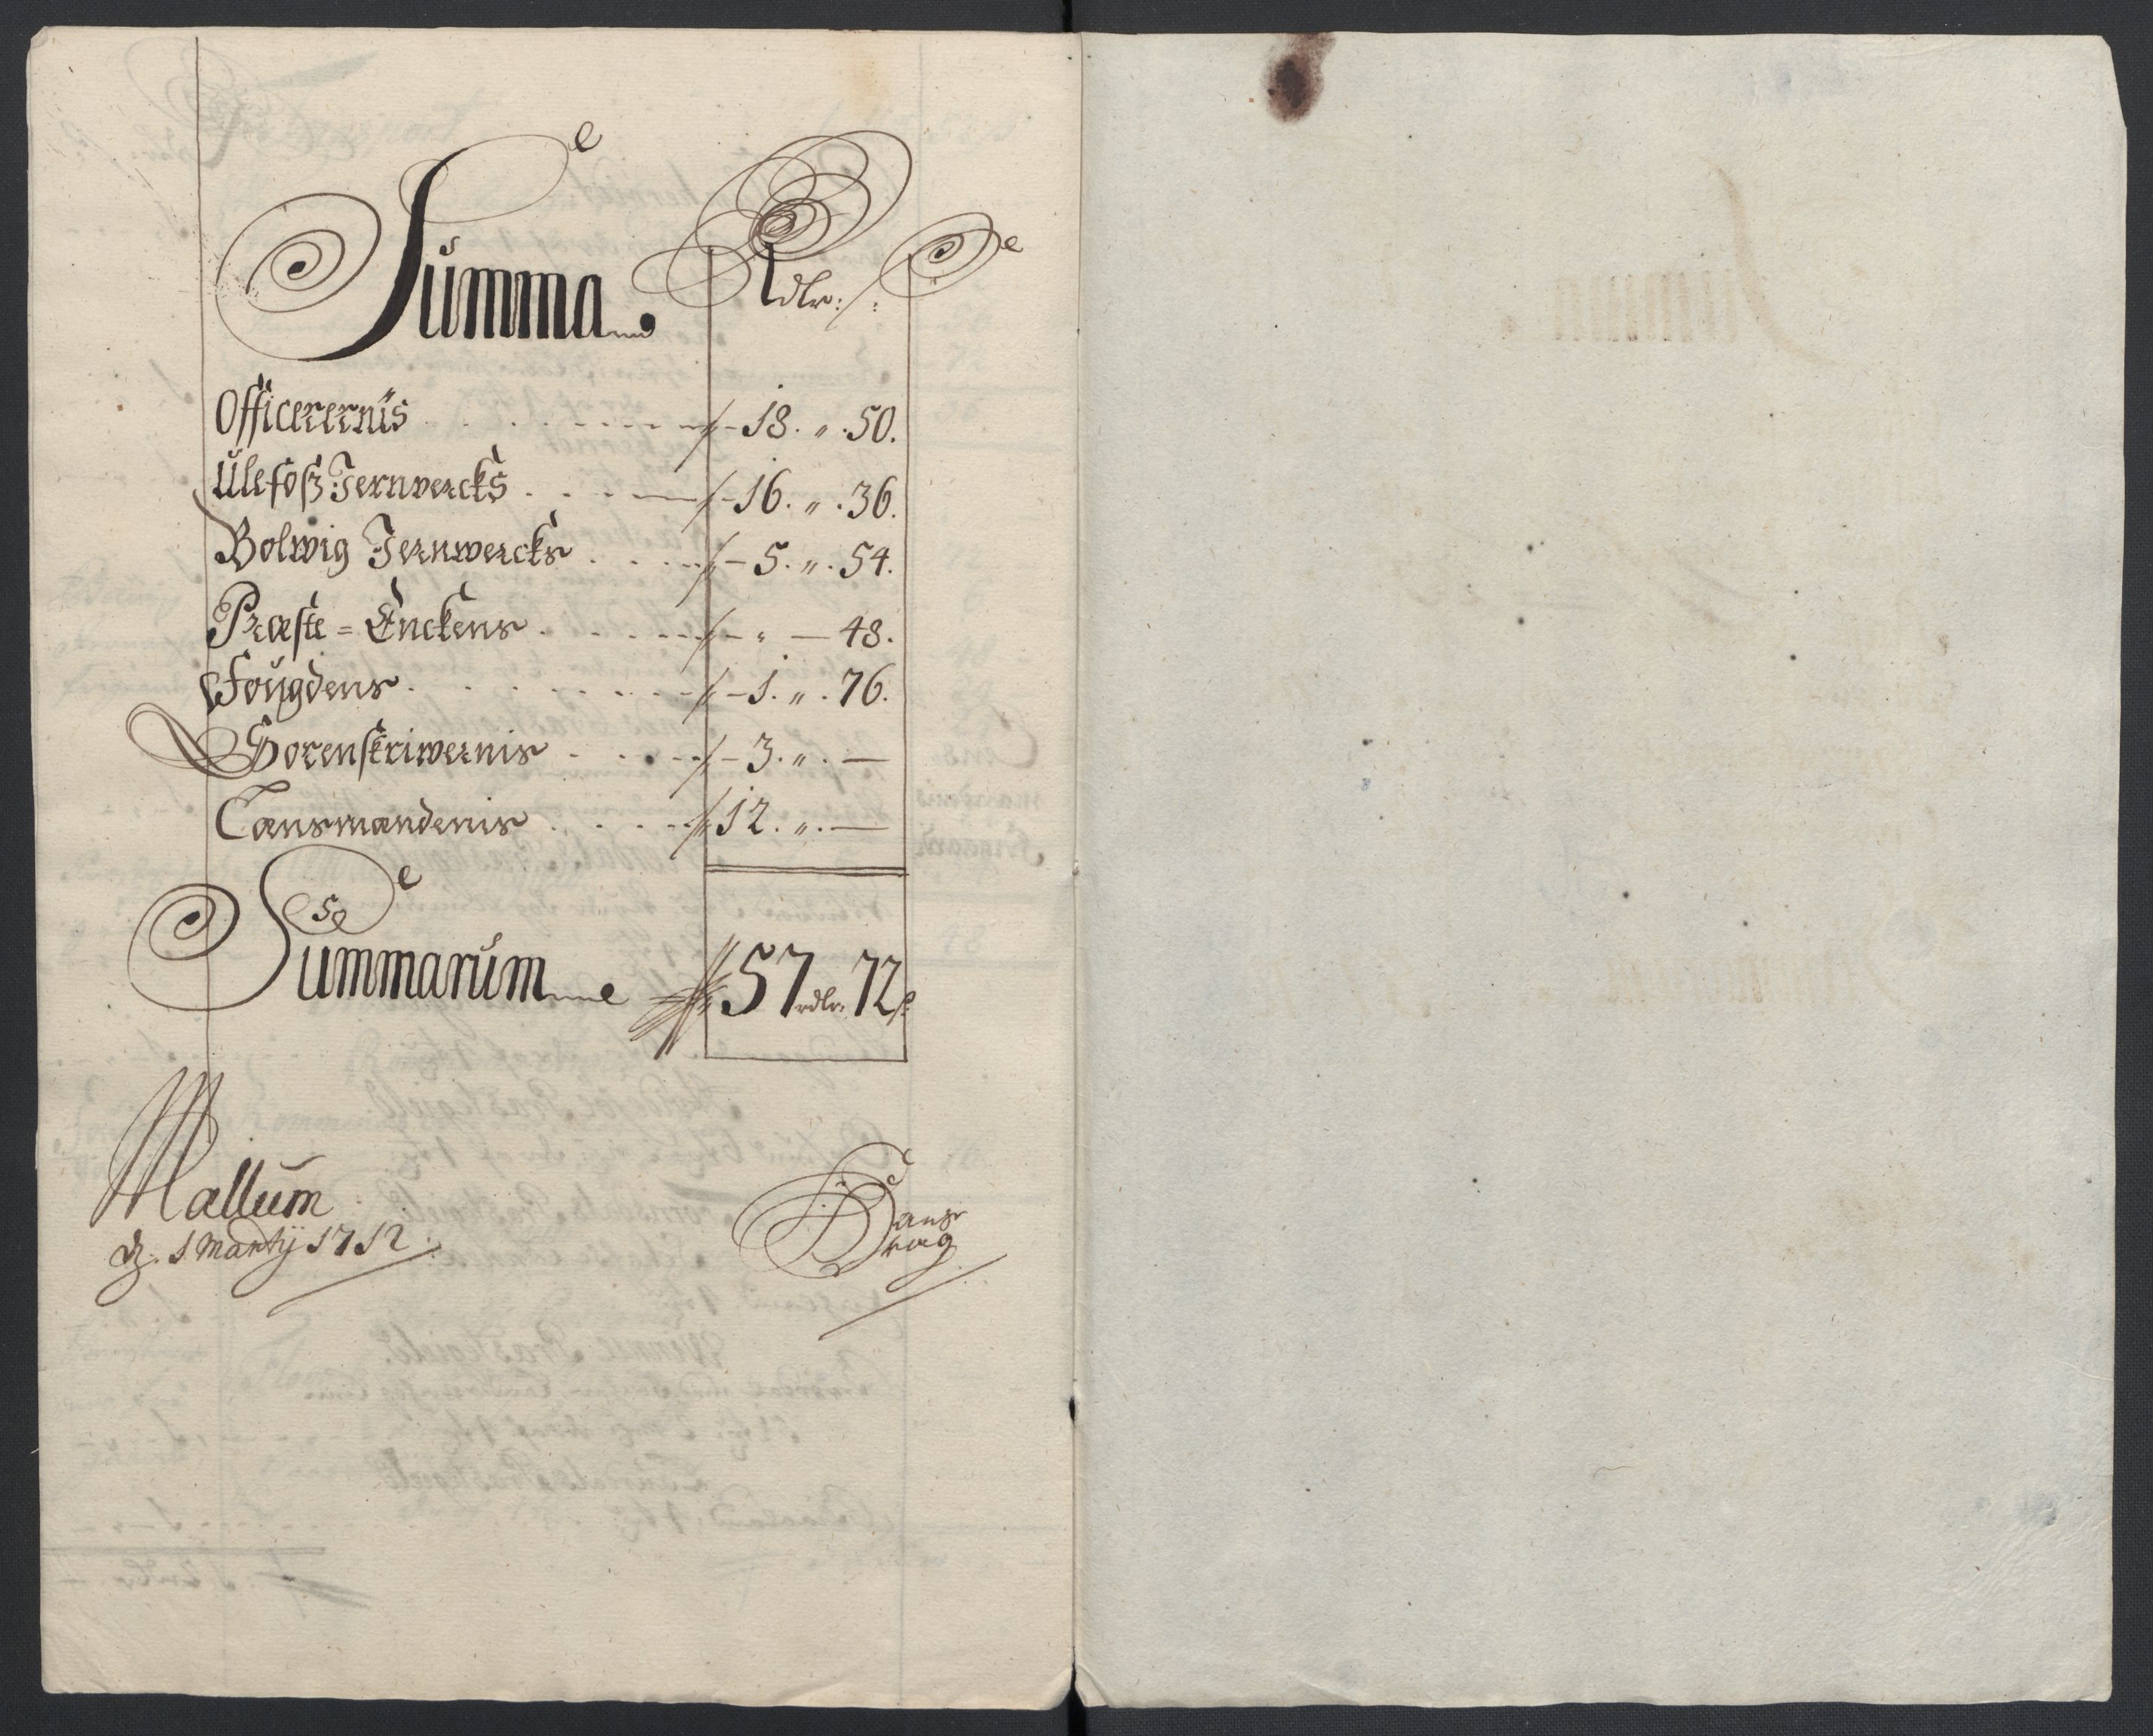 Summa Rdlr: ß
Officerernis 18. „ 50.
Ulefos Jernvercks 16. „ 36.
Bolwig Jernwercks 5. „ 54.
Præste = Enckens „ — 48.
Fougdens 1. „ 76.
Sorenskriwernis 3. „ —
Lænsmændenis 12. „ —
Summarum 57 rdlr. 72 ß
Mallum
d. 1 Martij 1712.
Hans